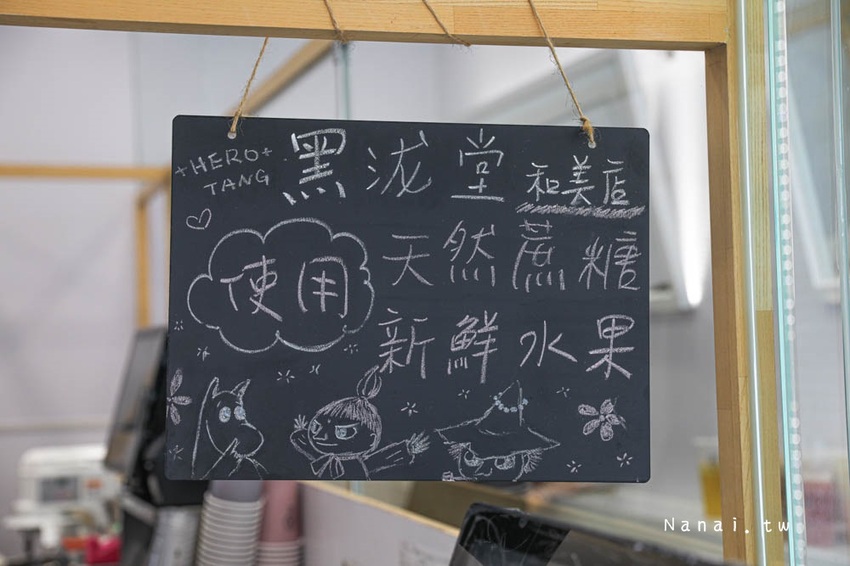 +HERO+
TANG
黑泷堂 和美店
使用
天然蔗糖
新鮮水果
Nanai.tw